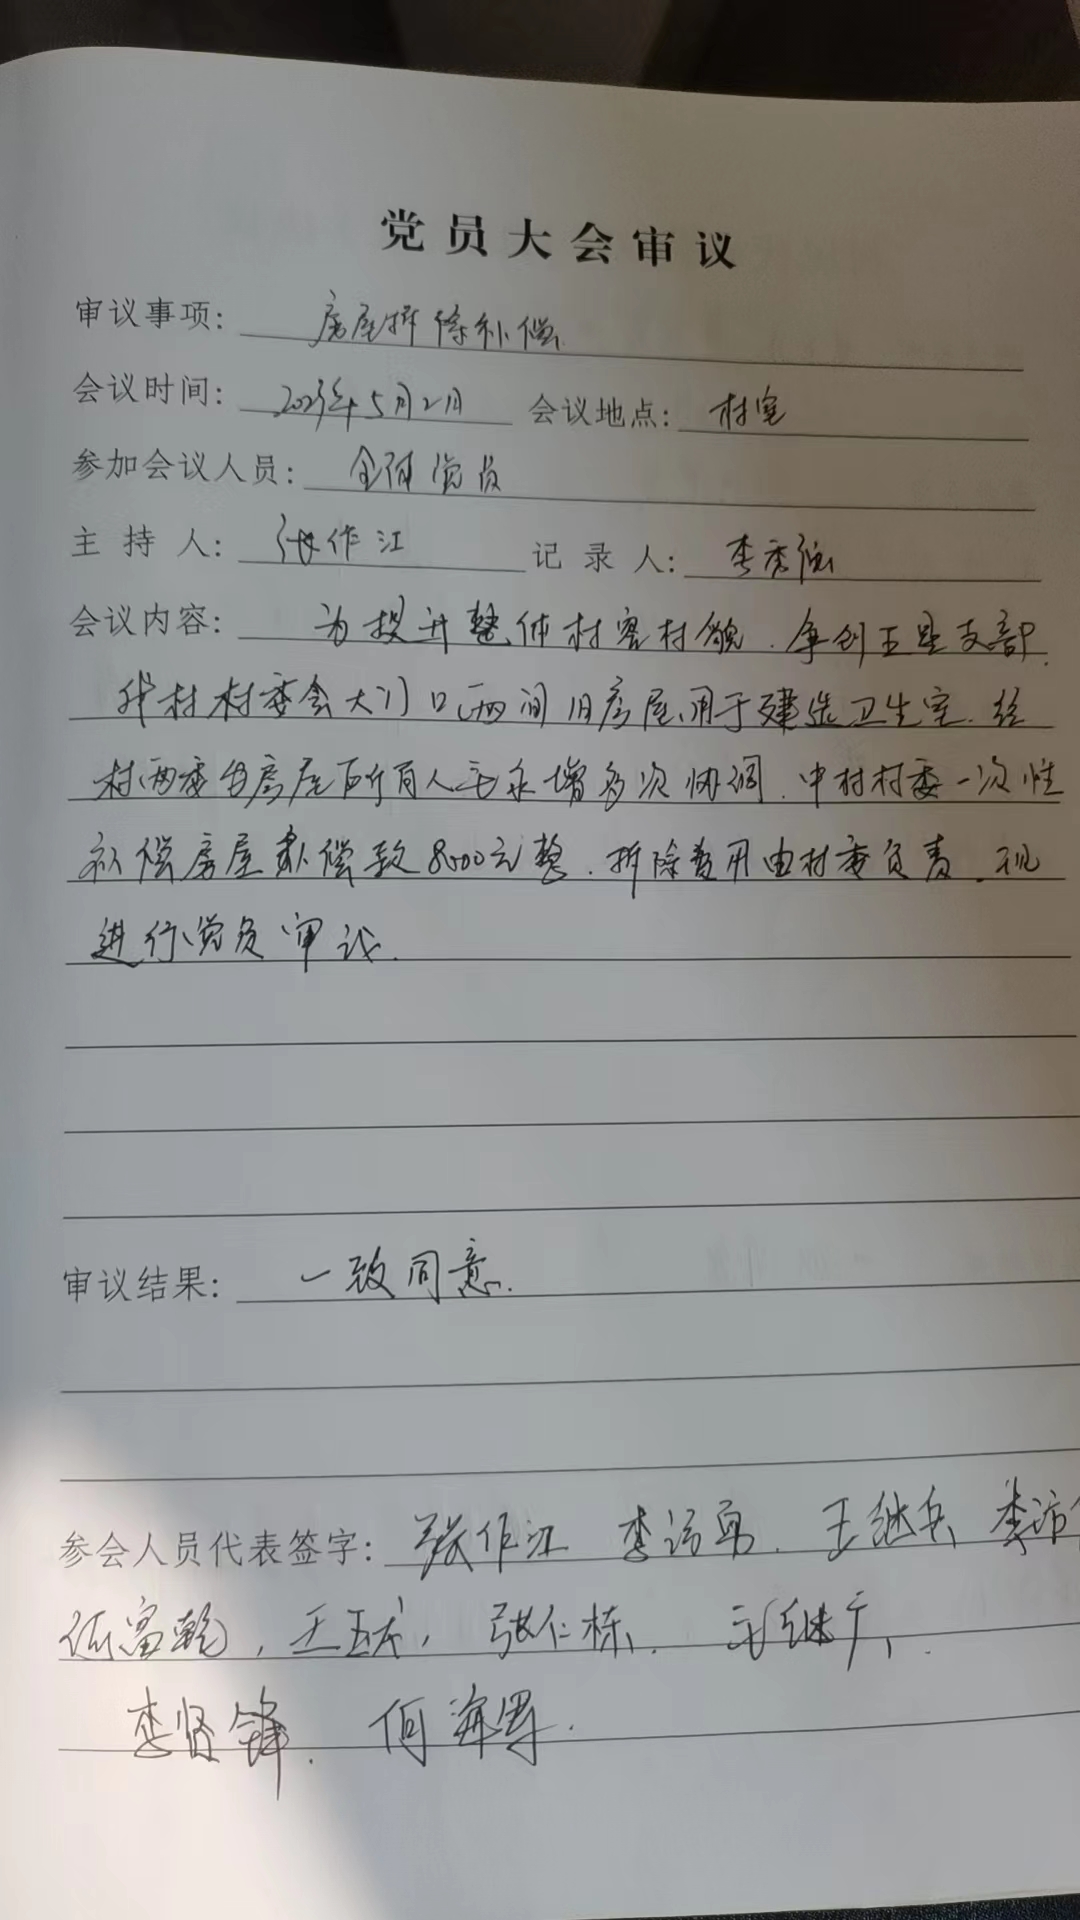 党员大会审议
审议事项: 房屋拆除补偿
会议时间: 2023年5月2日 会议地点: 村室
参加会议人员: 全体党员
主持人: 张作江 记录人: 李秀
会议内容: 为提升整体村容村貌.争创五星支部.
我村村委会大门口两间旧房屋用于建造卫生室.经
村两委与房屋所有人毛永增多次协调.中村村委一次性
补偿房屋补偿款8500元整.拆除费用由村委负责.现
进行党员审议.
审议结果: 一致同意.
参会人员代表签字: 张作江 李 王继兵 李
王 张仁栋. 继广,
李贤锋. 何海